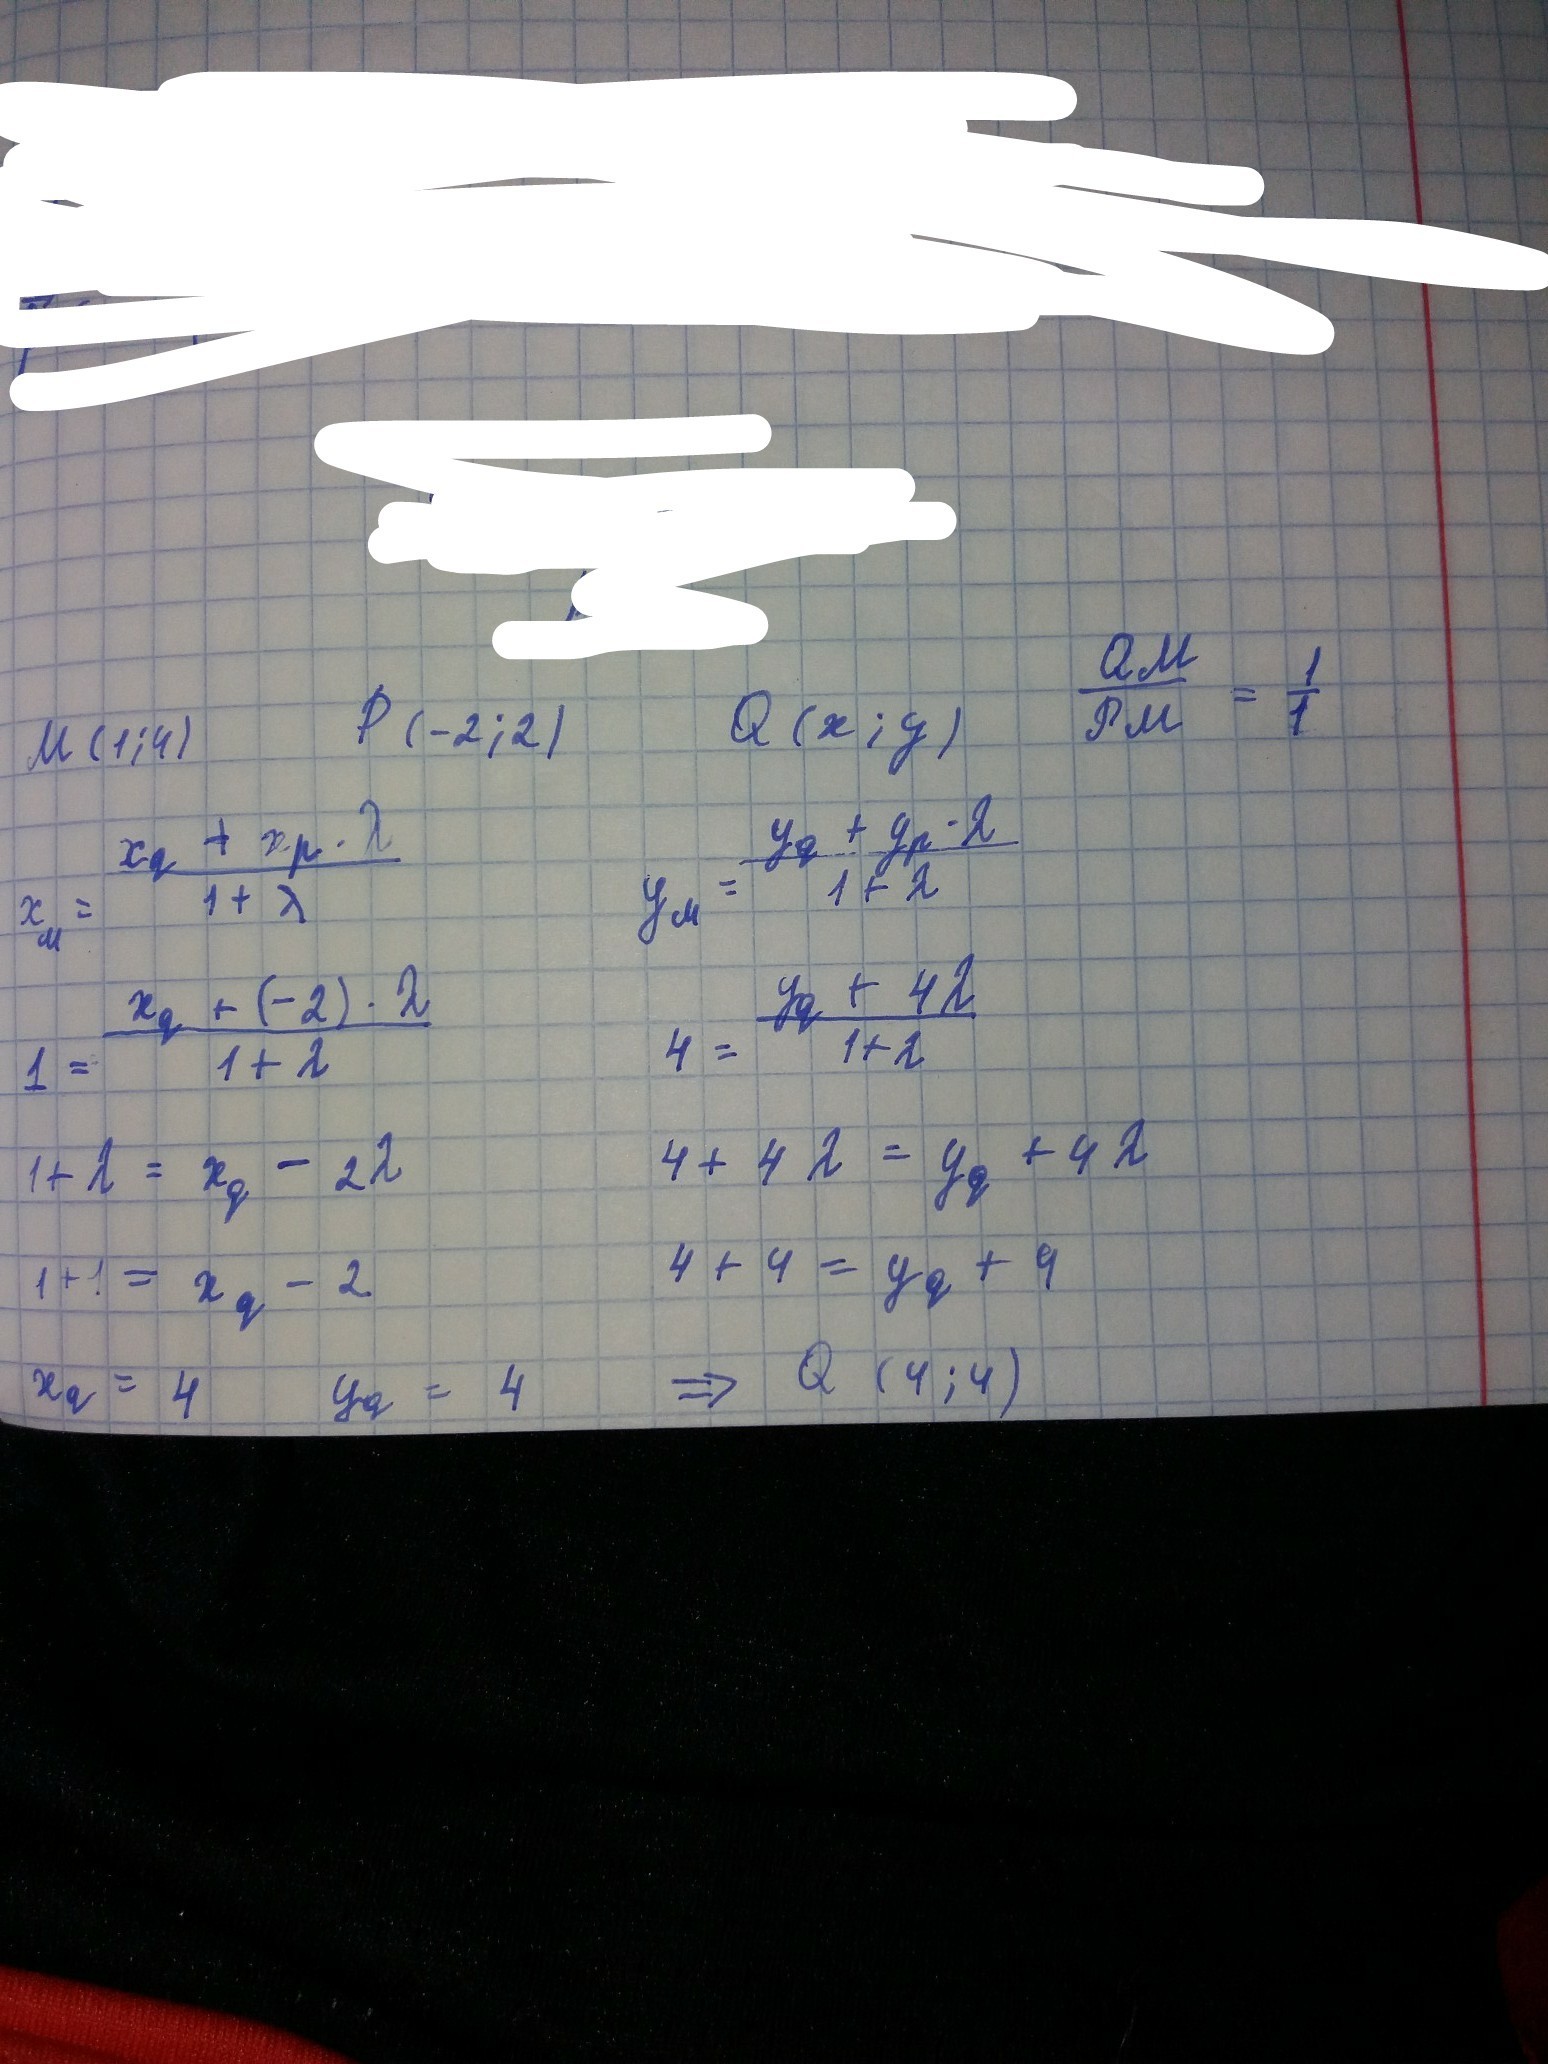 M (1;4) P (-2;2) Q (x;y) QM/PM = 1/1
x_M = (x_q + x_p · λ)/(1 + λ) y_M = (y_q + y_p · λ)/(1 + λ)
1 = (x_q + (-2) · λ)/(1 + λ) 4 = (y_q + 4λ)/(1 + λ)
1 + λ = x_q - 2λ 4 + 4λ = y_q + 4λ
1 + 1 = x_q - 2 4 + 4 = y_q + 4
x_q = 4 y_q = 4 => Q (4;4)